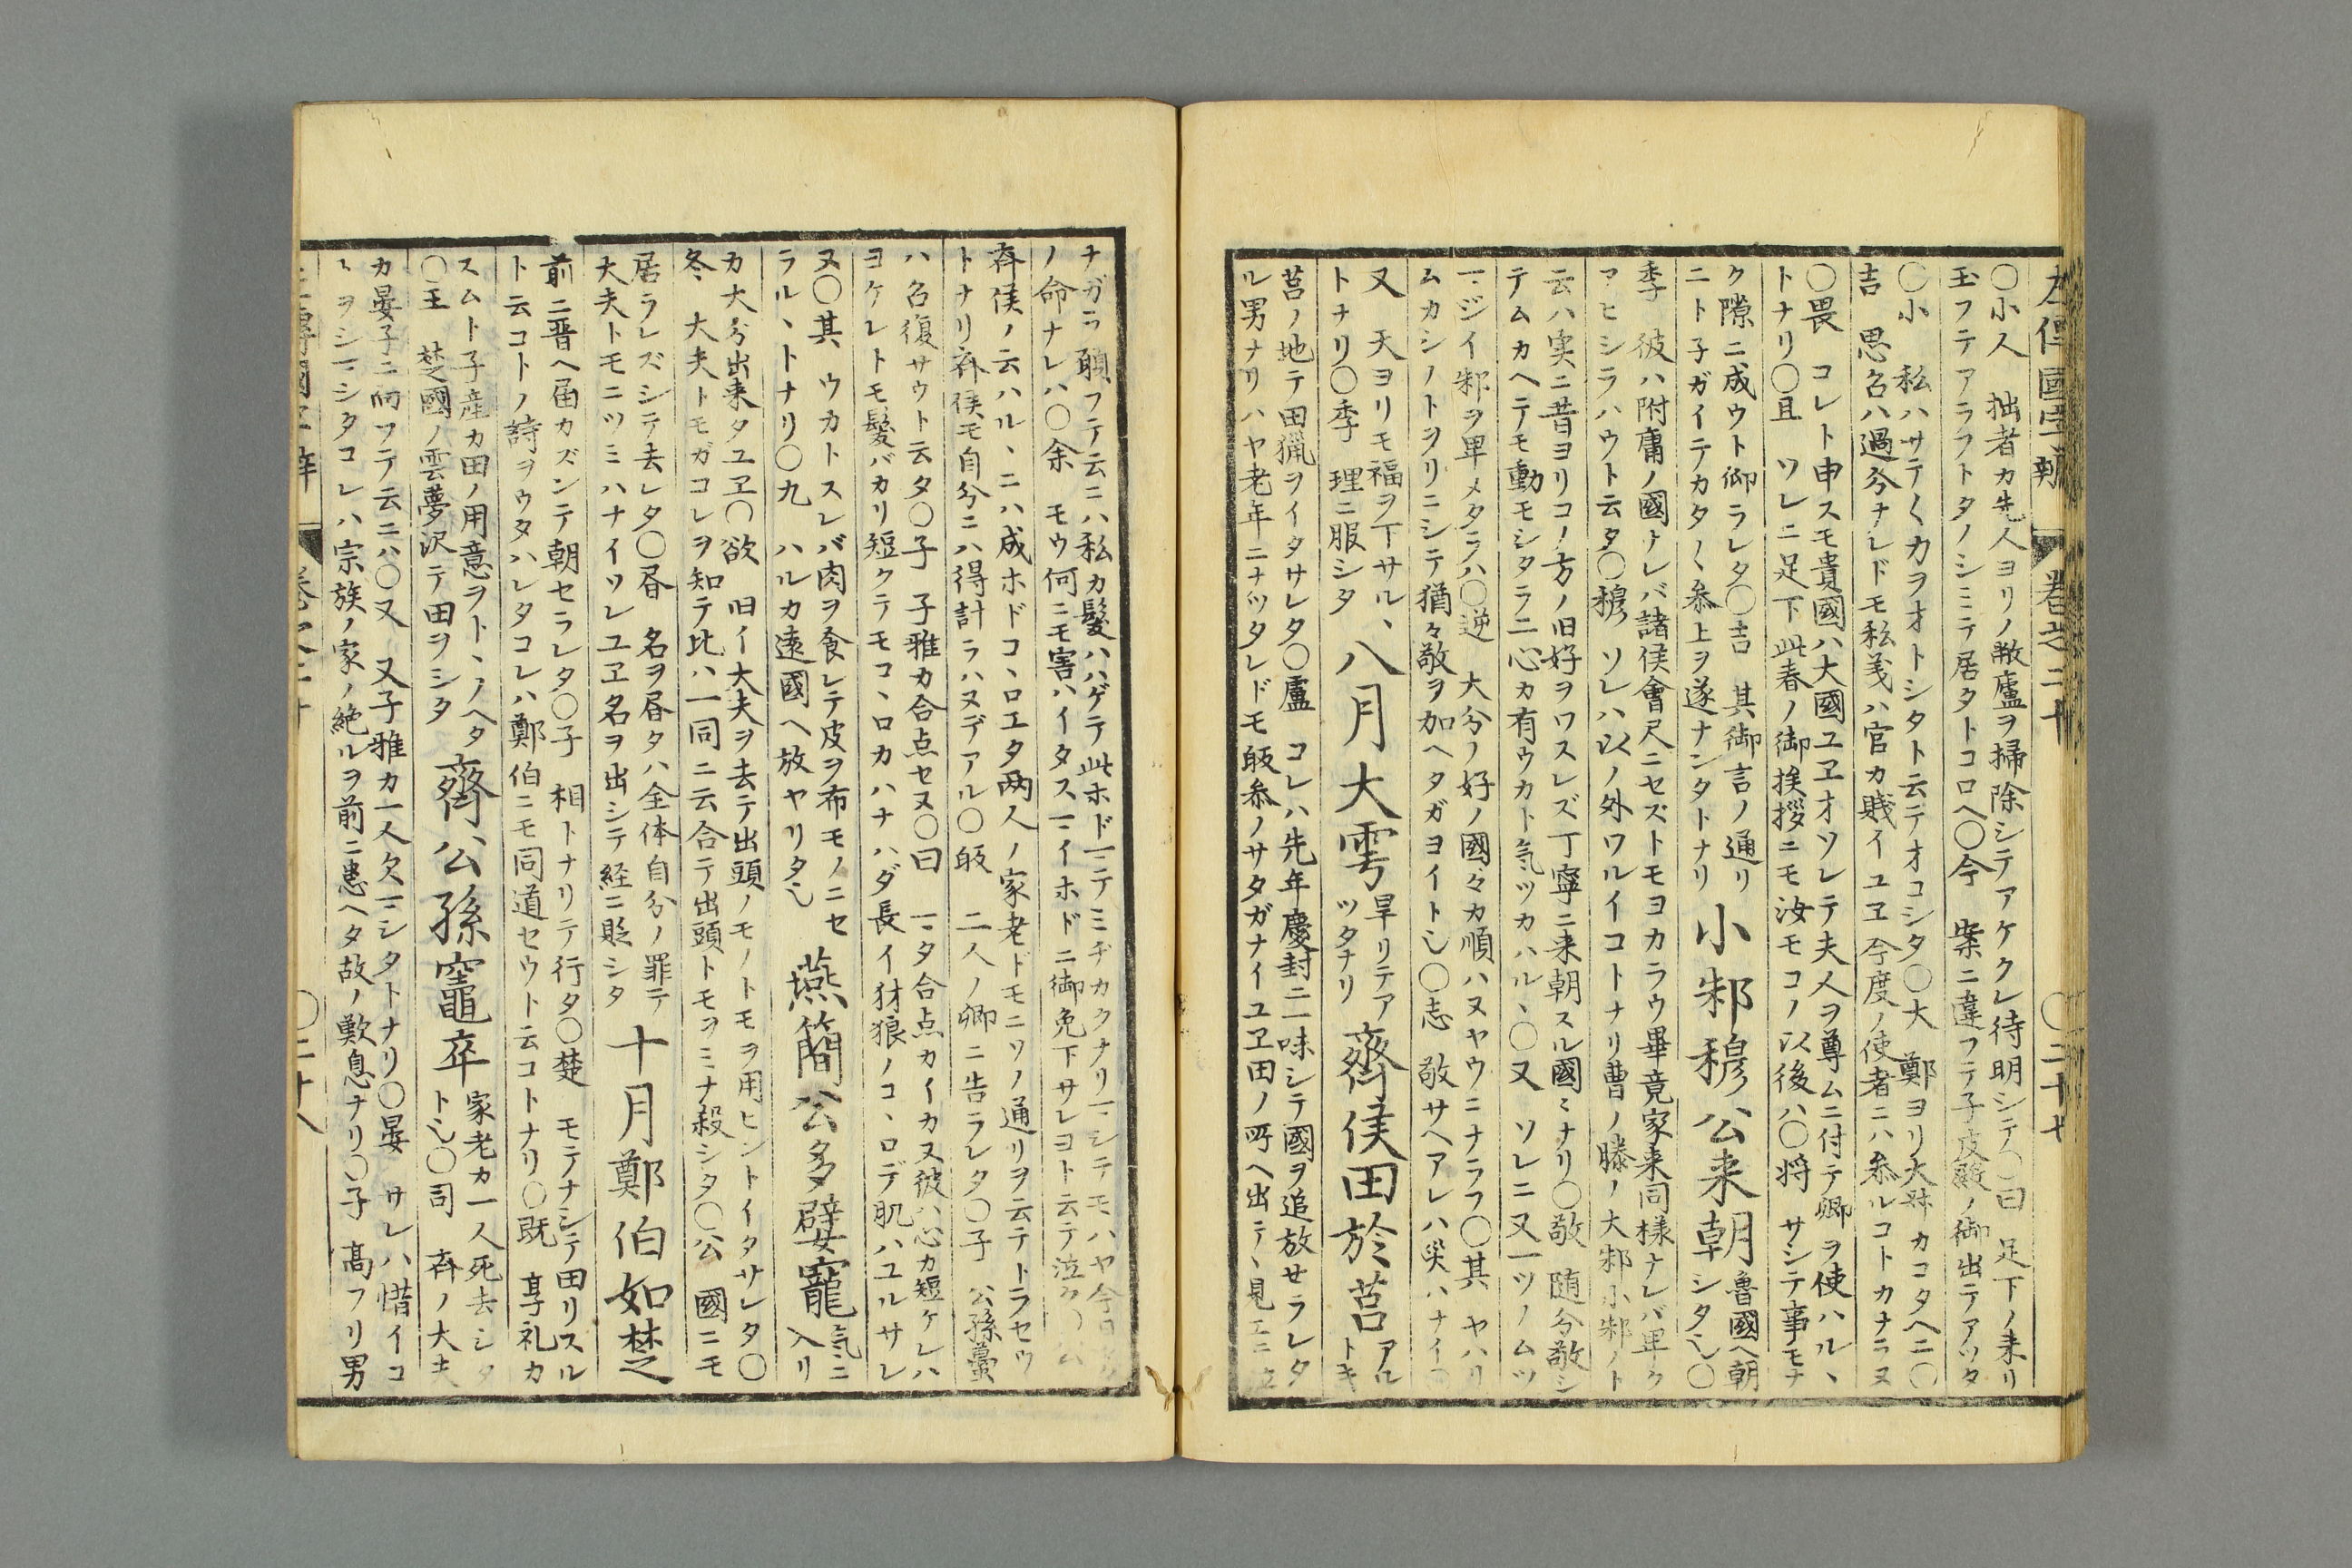 左傳國字辯 巻之二十 〇二十七
〇小人 拙者カ先人ヨリノ敝廬ヲ掃除シテアケクレ待明シテ〇曰 足下ノ来リ
玉フテアラフトタノシミテ居タトコロヘ〇今 案ニ違フテ子皮殿ノ御出テアツタ
〇小 私ハサテ〱力ヲオトシタト云テオコシタ〇大 鄭ヨリ大叔カコタヘニ〇
吉 思召ハ過分ナレドモ私義ハ官カ賤イユヱ今度ノ使者ニハ参ルコトカナラヌ
〇畏 コレト申スモ貴國ハ大國ユヱオソレテ夫人ヲ尊ムニ付テ卿ヲ使ハル、
トナリ〇且 ソレニ足下此春ノ御挨拶ニモ汝モコノ以後ハ〇将 サシテ事モナ
ク隙ニ成ウト仰ラレタ〇吉 其御言ノ通リ
ニト子ガイテカタ〱参上ヲ遂ナンタトナリ
小邾穆公来朝
魯國ヘ朝
シタ也〇
季 彼ハ附庸ノ國ナレバ諸侯會尺ニセズトモヨカラウ畢竟家来同樣ナレバ卑ク
マヒシラハウト云タ〇穆 ソレハ以ノ外ワルイコトナリ曹ノ滕ノ大邾小邾ノト
云ハ実ニ昔ヨリコノ方ノ旧好ヲワスレズ丁寧ニ来朝スル國〻ナリ〇敬 随分敬シ
テムカヘテモ動モシタラ二心カ有ウカト気ツカハル、〇又 ソレニ又一ツノムツ
マジイ邾ヲ卑メタラハ〇逆 大分ノ好ノ國々カ順ハヌヤウニナラフ〇其 ヤハリ
ムカシノトヲリニシテ猶々敬ヲ加ヘタガヨイト也〇志 敬サヘアレハ災ハナイ〇
又 天ヨリモ福ヲ下サル、
トナリ〇季 理ニ服シタ
八月大雩
旱リテア
ツタナリ
齊侯田於莒
アル
トキ
莒ノ地テ田猟ヲイタサレタ〇盧 コレハ先年慶封ニ一味シテ國ヲ追放セラレタ
ル男ナリハヤ老年ニナツタレドモ皈参ノサタガナイユヱ田ノ所ヘ出テ、見エニ泣
ナガラ願フテ云ニハ私カ髮ハハゲテ此ホドマテミヂカクナリマシテモハヤ今
ノ命ナレハ〇余 モウ何ニモ害ハイタスマイホドニ御免下サレヨト云テ泣ク〇公
斉侯ノ云ハル、ニハ成ホドコ、ロエタ两人ノ家老ドモニソノ通リヲ云テトラセウ
トナリ斉侯モ自分ニハ得計ラハヌデアル〇皈 二人ノ卿ニ告ラレタ〇子 公孫蠆
ハ召復サウト云タ〇子 子雅カ合点セヌ〇曰 マタ合点カイカヌ彼ハ心カ短ケレハ
ヨケレトモ髮バカリ短クテモコ、ロカハナハダ長イ犲狼ノコ、ロデ肌ハユルサレ
ヌ〇其 ウカトスレバ肉ヲ食レテ皮ヲ布モノニセ
ラル、トナリ〇九 ハルカ遠國ヘ放ヤリタ也
燕簡公多嬖寵
気ニ
入リ
カ大分出来タユヱ〇欲 旧イ大夫ヲ去テ出頭ノモノトモヲ用ヒントイタサレタ〇
冬 大夫トモガコレヲ知テ比ハ一同ニ云合テ出頭トモヲミナ殺シタ〇公 國ニモ
居ラレズシテ去レタ〇昬 名ヲ昬タハ全体自分ノ罪テ
大夫トモニツミハナイソレユヱ名ヲ出シテ経ニ貶シタ
十月鄭伯如楚
前ニ晋ヘ届カズンテ朝セラレタ〇子 相トナリテ行タ〇楚 モテナシテ田リスル
ト云コトノ詩ヲウタハレタコレハ鄭伯ニモ同道セウト云コトナリ〇既 享礼カ
スムト子産カ田ノ用意ヲト、ノヘタ
〇王 楚國ノ雲夢沢テ田ヲシタ
齊公孫竈卒
家老カ一人死去シタ
ト也〇司 斉ノ大夫
カ晏子ニ向フテ云ニハ〇又 又子雅カ一人欠マシタトナリ〇晏 サレハ惜イコ
トヲシマシタコレハ宗族ノ家ノ絶ルヲ前ニ患ヘタ故ノ歎息ナリ〇子 高フリ男